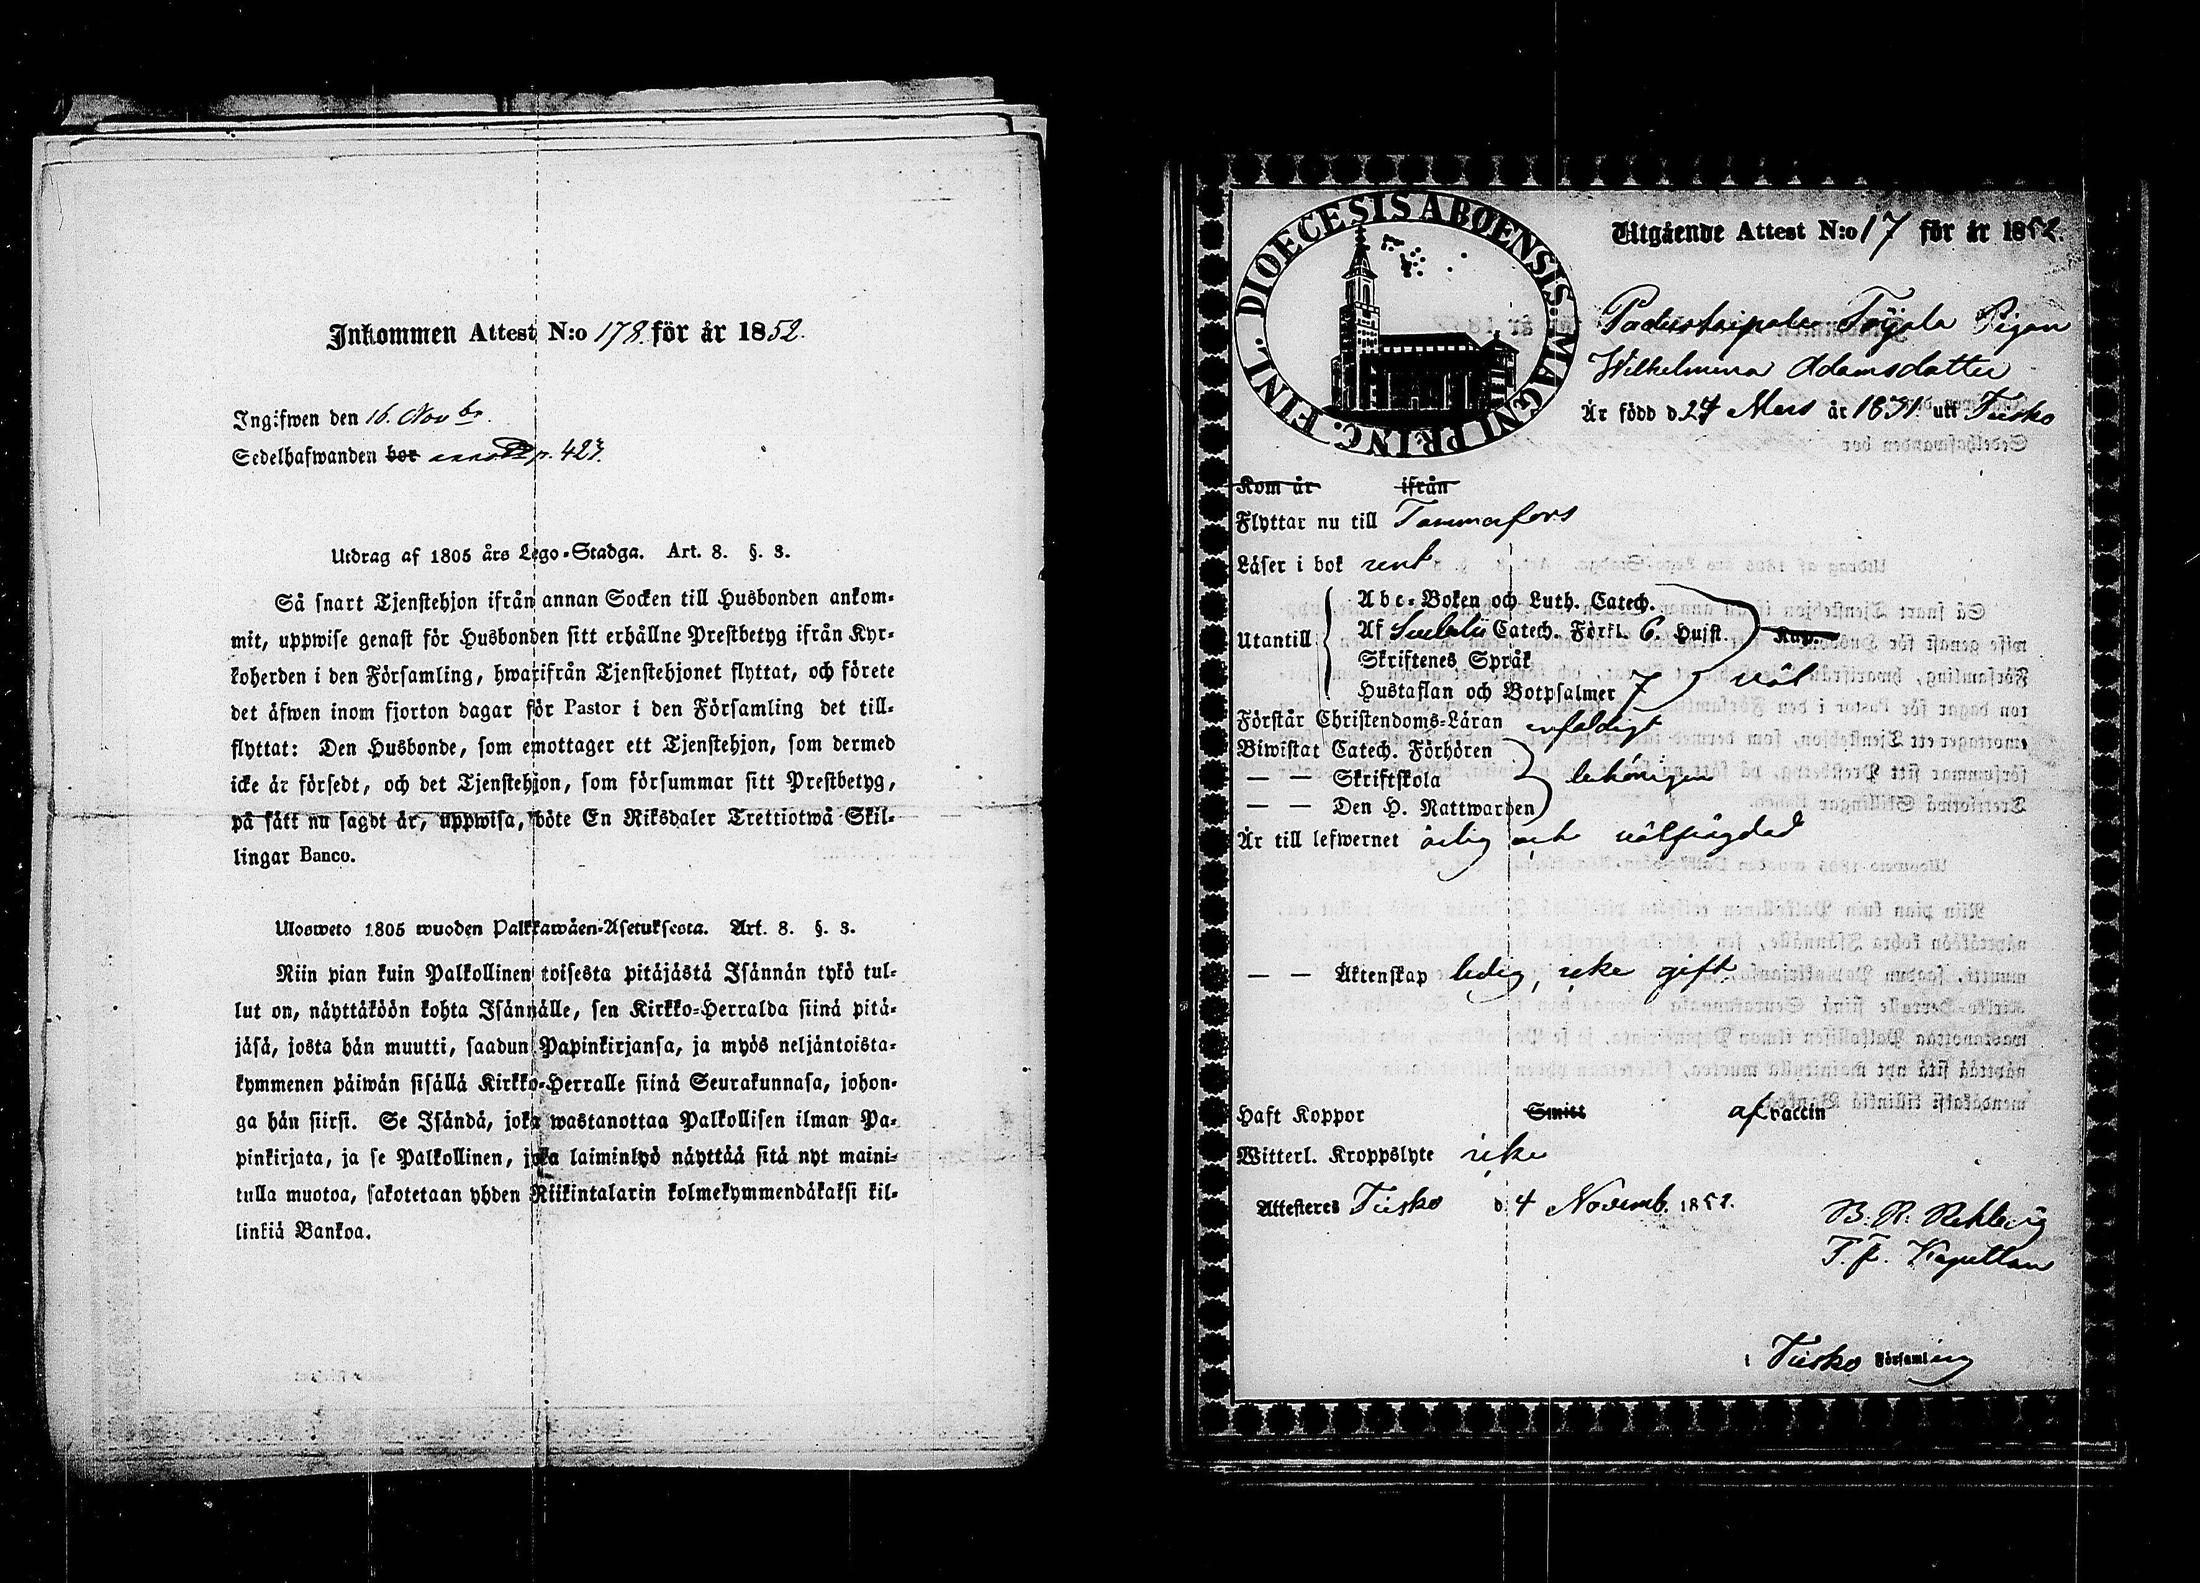 Inkommen Attest N:o 178. för år 1852.
Ingifwen den 16. Novbr.
Sedelhafwanden bor p. 423.
Utdrag af 1805 års Lego-Stadga. Art. 8. §. 3.
Så snart Tjenstehjon ifrån annan Socken till Husbonden ankom-
mit, uppwise genast för Husbonden sitt erhållne Prestbetyg ifrån Kyr-
koherden i den Församling, hwarifrån Tjenstehjonet flyttat, och förete
det äfwen inom fjorton dagar för Pastor i den Församling det till-
flyttat: Den Husbonde, som emottager ett Tjenstehjon, som dermed
icke är försedt, och det Tjenstehjon, som försummar sitt Prestbetyg,
på sätt nu sagdt är, uppwisa, böte En Riksdaler Trettiotwå Skil-
lingar Banco.
Ulosweto 1805 wuoden Palkkawäen-Asetuksesta. Art. 8. §. 3.
Niin pian kuin Palkollinen toisesta pitäjästä Isännän tykö tul-
lut on, näyttäköön kohta Isännälle, sen Kirkko-Herralda siinä pitä-
jäsä, josta hän muutti, saadun Papinkirjansa, ja myös neljäntoista-
kymmenen päiwän sisällä Kirkko-Herralle siinä Seurakunnasa, johon-
ga hän siirsi. Se Isändä, joka wastanottaa Palkollisen ilman Pa-
pinkirjata, ja se Palkollinen, joka laiminlyö näyttää sitä nyt maini-
tulla muotoa, sakotetaan yhden Riikintalarin kolmekymmendäkaksi kil-
linkiä Bankoa.
DIOECESIS ABOENSIS MAGNI PRINC. FINL.
Utgående Attest N:o 17 för år 1852.
Töijala Pigan
Wilhelmina Adamsdotter
Är född d 27 Mars år 1831 uti Tüsko
Kom år ifrån
Flyttar nu till Tammerfors
Läser i bok rent
Utantill
Abc-Boken och Luth. Catech.
Af Svebelii Catech. Förkl. 6. Hufst. Kap.
Skriftenes Språk
Hustaflan och Botpsalmer 7 väl
Förstår Christendoms-Läran enfaldigt
Biwistat Catech. Förhören
— — Skriftskola behörigen
— — Den H. Nattwarden
Är till lefwernet ärlig och välfrägdad
— — Äktenskap ledig, icke gift
Haft Koppor Smitt af vaccin
Witterl. Kroppslyte icke
Attesteres Tüsko d. 4 Novemb. 1852.
B. R. Rehbing
T. f. Kapellan
i Tüsko Församling